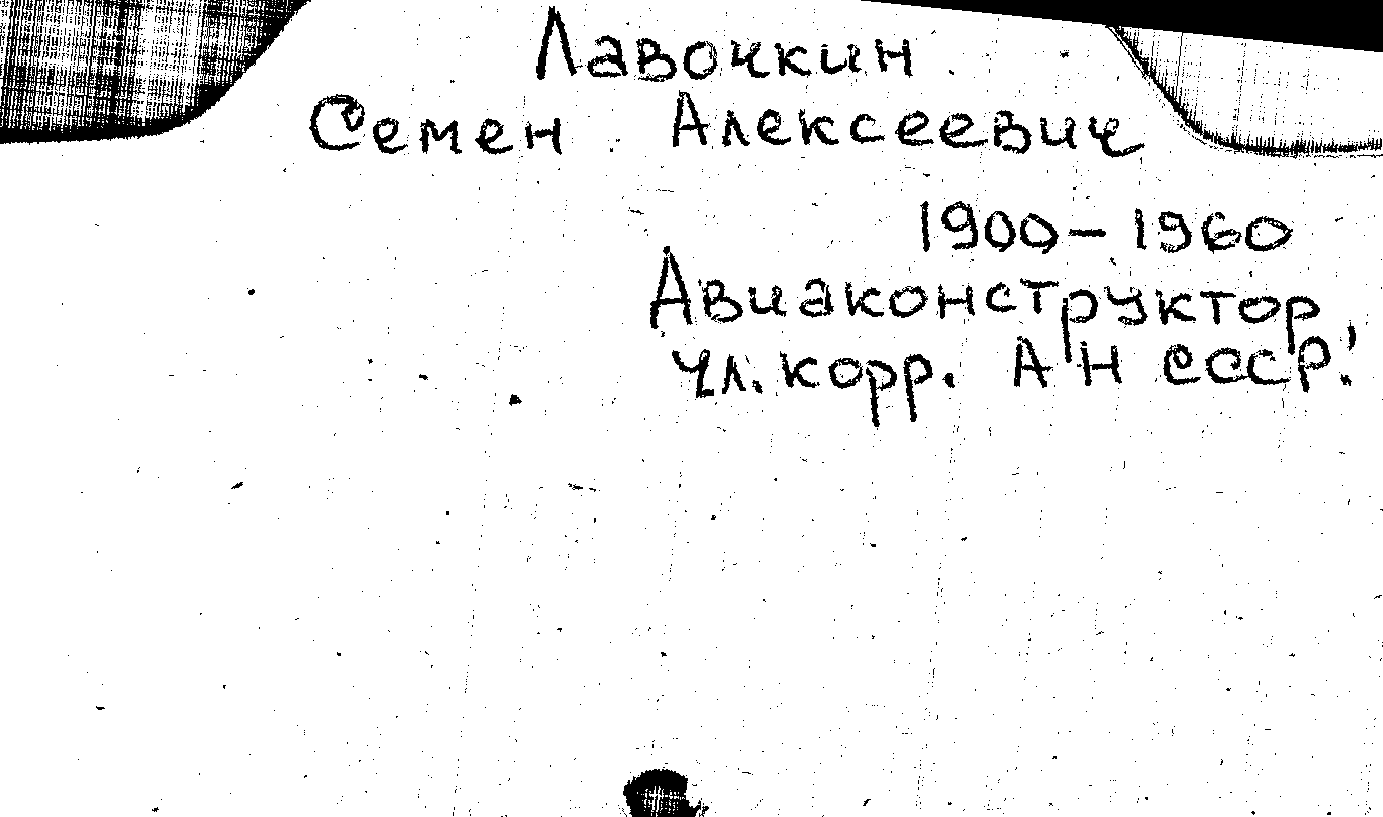 Лавочкин
Семен Алексеевич
1900-1960
Авиаконструктор,
чл. корр. АН СССР!